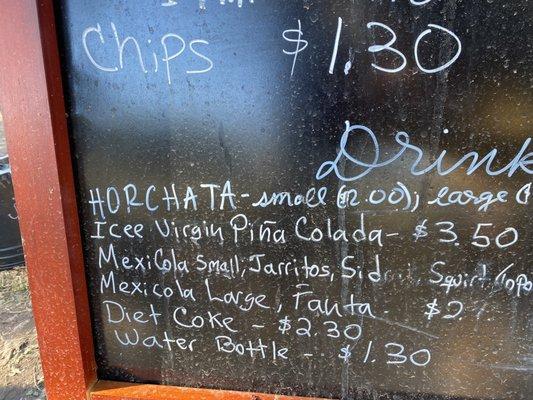 Chips $1.30
Drink
HORCHATA - small ($2.00); large (
Icee Virgin Piña Colada - $3.50
MexiCola Small, Jarritos, Sid Squirt
Mexicola Large, Fanta - $2
Diet Coke - $2.30
Water Bottle - $1.30